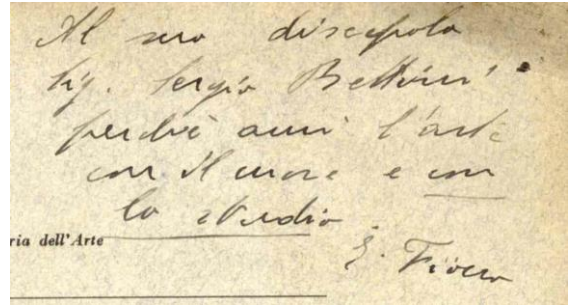 Al suo discepolo
Sig. Sergio Bettini
perchè ami l'arte
con il cuore e con
lo studio
ria dell'Arte
G. Fiocco